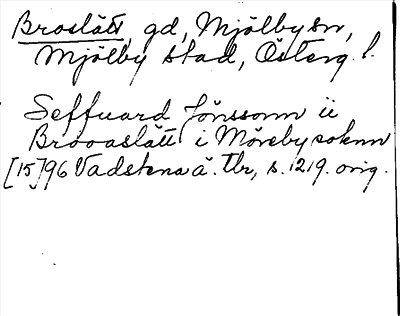 Broslätt, gd, Mjölby sn,
Mjölby stad, Österg. l.
Seffuard Jönssonn ii
Brooaslätt i Möreby soknn
[15]96 Vadstena ä. tbr, s. 1219. orig.